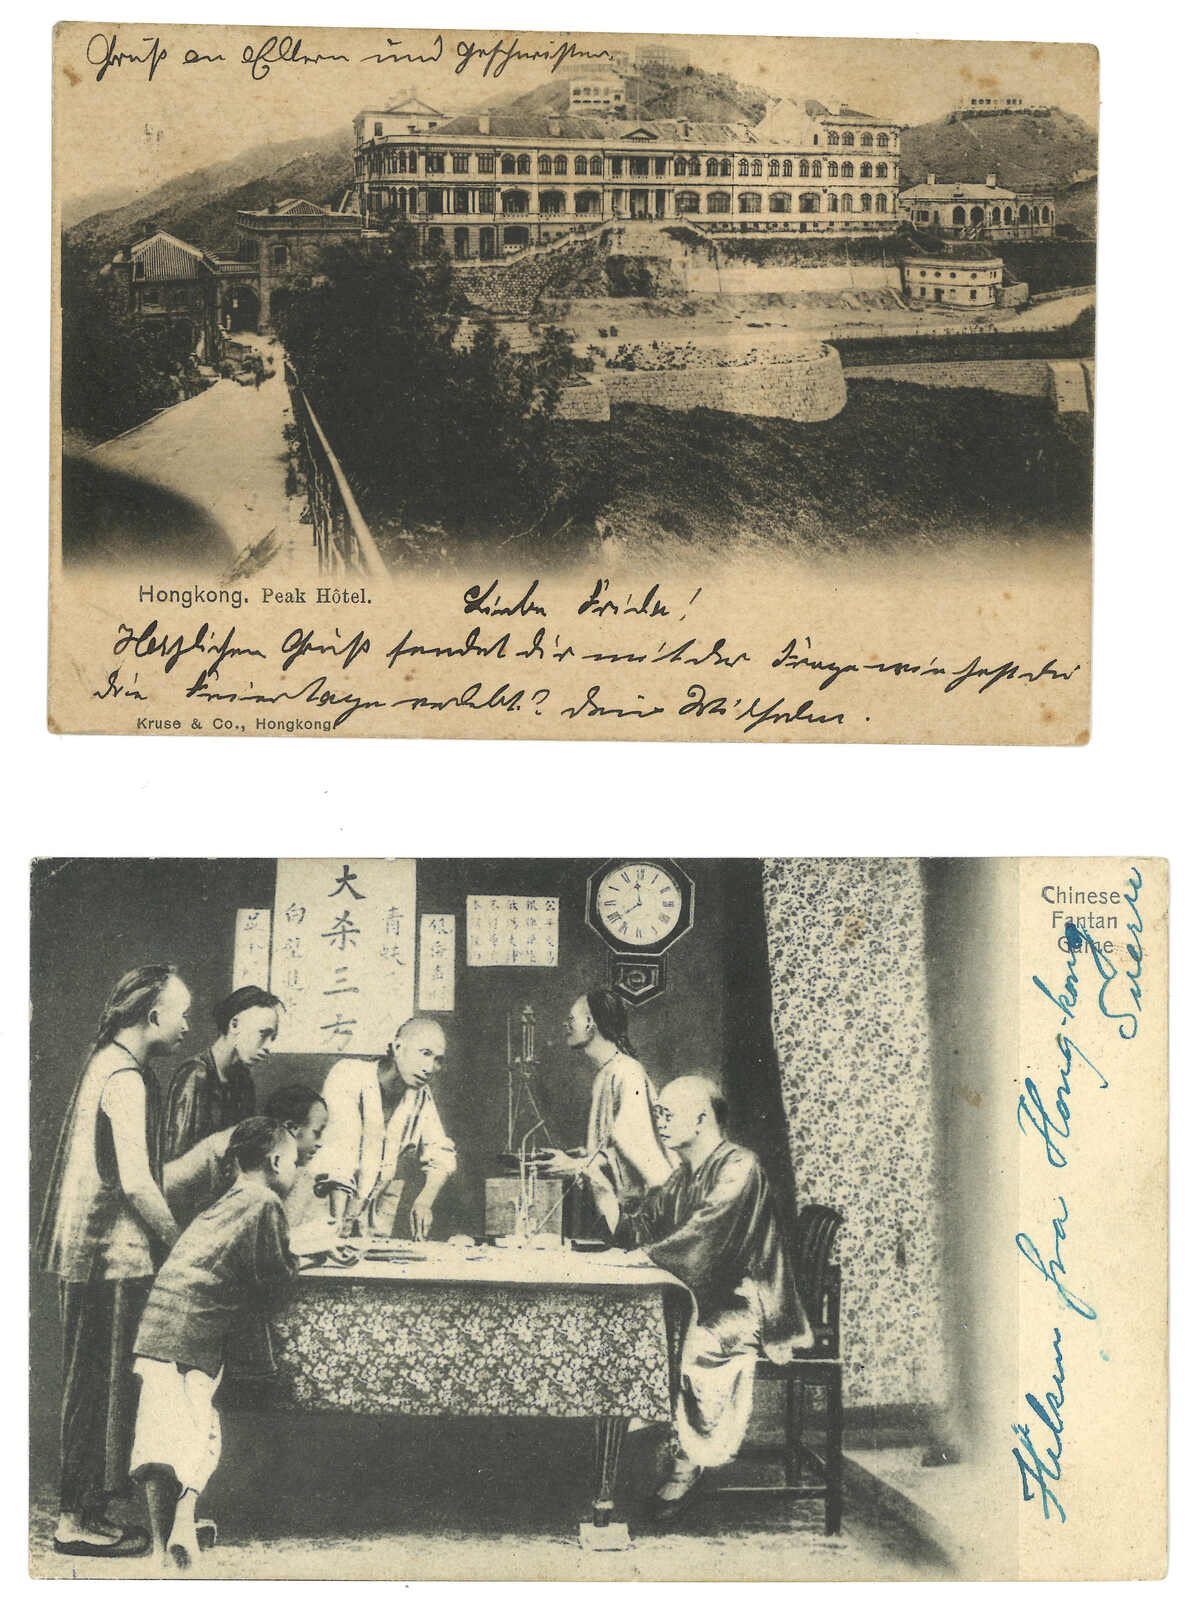 Gruß an Eltern und Geschwister.
Hongkong. Peak Hôtel.
Liebe Frida!
Herzlichen Gruß sendet dir mit der Frage wie hast du
die Feiertage verlebt? Dein Wilhelm.
Kruse & Co., Hongkong.
大杀三方
青蚨
白
Chinese
Fantan
Game
Hälsn fra Hong-kong
Sven